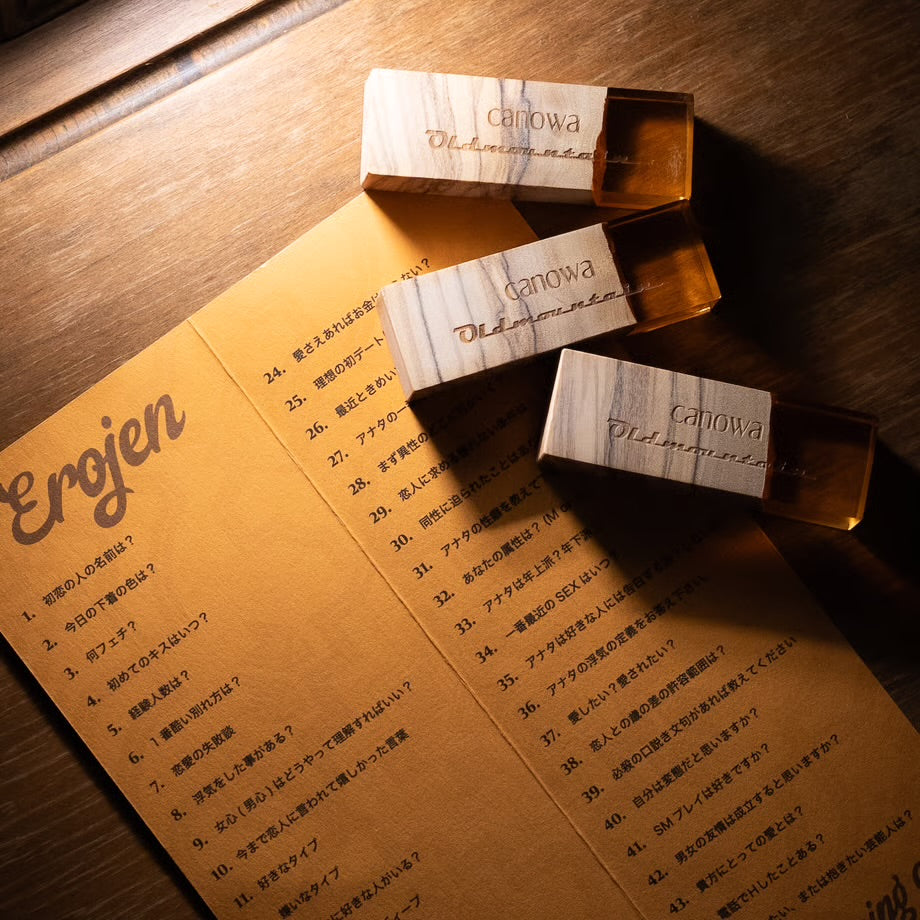 canowa
Oldmountain
canowa
Oldmountain
canowa
Oldmountain
Erojen
1. 初恋の人の名前は？
2. 今日の下着の色は？
3. 何フェチ？
4. 初めてのキスはいつ？
5. 経験人数は？
6. 1番酷い別れ方は？
7. 恋愛の失敗談
8. 浮気をした事がある？
9. 女心(男心)はどうやって理解すればいい？
10. 今まで恋人に言われて嬉しかった言葉
11. 好きなタイプ
嫌いなタイプ
に好きな人がいる？
ディープ
24. 愛さえあればお金 ない？
25. 理想の初デート
26. 最近ときめい
27. アナタの一
28. まず異性の
29. 恋人に求め
30. 同性に迫られたことはあ
31. アナタの性癖を教えて
32. あなたの属性は？(M or
33. アナタは年上派？年下派
34. 一番最近の SEX はいつ
35. アナタは好きな人には告白する
36. アナタの浮気の定義をお答え下さい
37. 愛したい？愛されたい？
38. 恋人との歳の差の許容範囲は？
39. 必殺の口説き文句があれば教えてください
40. 自分は変態だと思いますか？
41. SMプレイは好きですか？
42. 男女の友情は成立すると思いますか？
43. 貴方にとっての愛とは？
電話でHしたことある？
い、または抱きたい芸能人は？